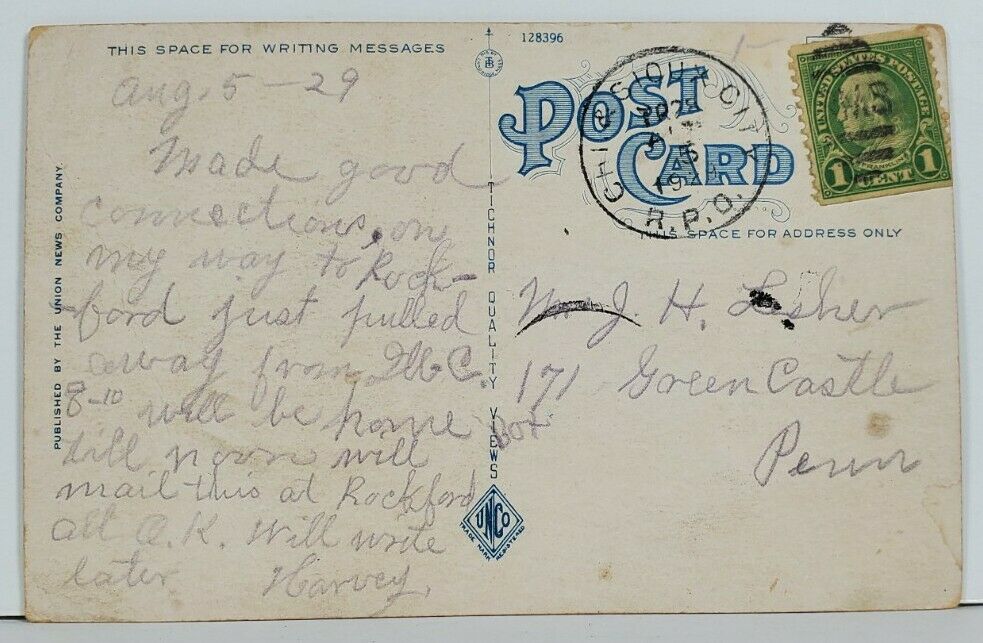 THIS SPACE FOR WRITING MESSAGES
Aug. 5-29
Made good
connections, on
my way to Rock-
ford just pulled
away from
8-10 will be home
till noon will
mail this at Rockford
all O.K. Will write
later Harvey
PUBLISHED BY THE UNION NEWS COMPANY.
TICHNOR QUALITY VIEWS
UNCO
TRADE MARK REGISTERED
128396
POST
CARD
CHI & SIOUX CITY
R.P.O.
UNITED STATES POSTAGE
1 CENT 1
THIS SPACE FOR ADDRESS ONLY
J. H. Lesher
Box 171 Green Castle
Penn